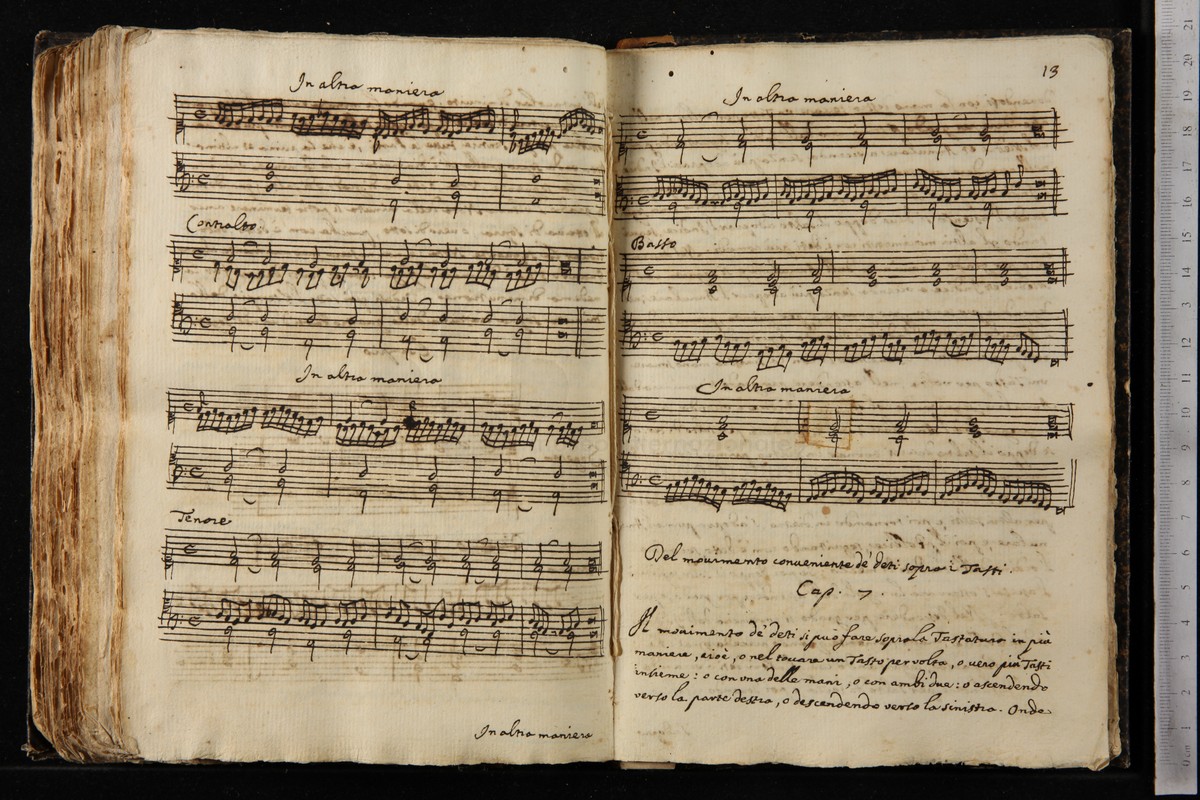 In altra maniera
Contralto.
In altra maniera
Tenore
In altra maniera
13
In altra maniera
Basso
In altra maniera
Del mouimento conueniente de' deti sopra i Tasti.
Cap. 7.
Il mouimento de' deti si puo fare sopra la Tastatura in più
maniere, cioè, o nel toccare un Tasto per volta, o uero più Tasti
insieme: o con una delle mani, o con ambi due: o ascendendo
verso la parte destra, o descendendo verso la sinistra. Onde
0 cm 1 2 3 4 5 6 7 8 9 10 11 12 13 14 15 16 17 18 19 20 21